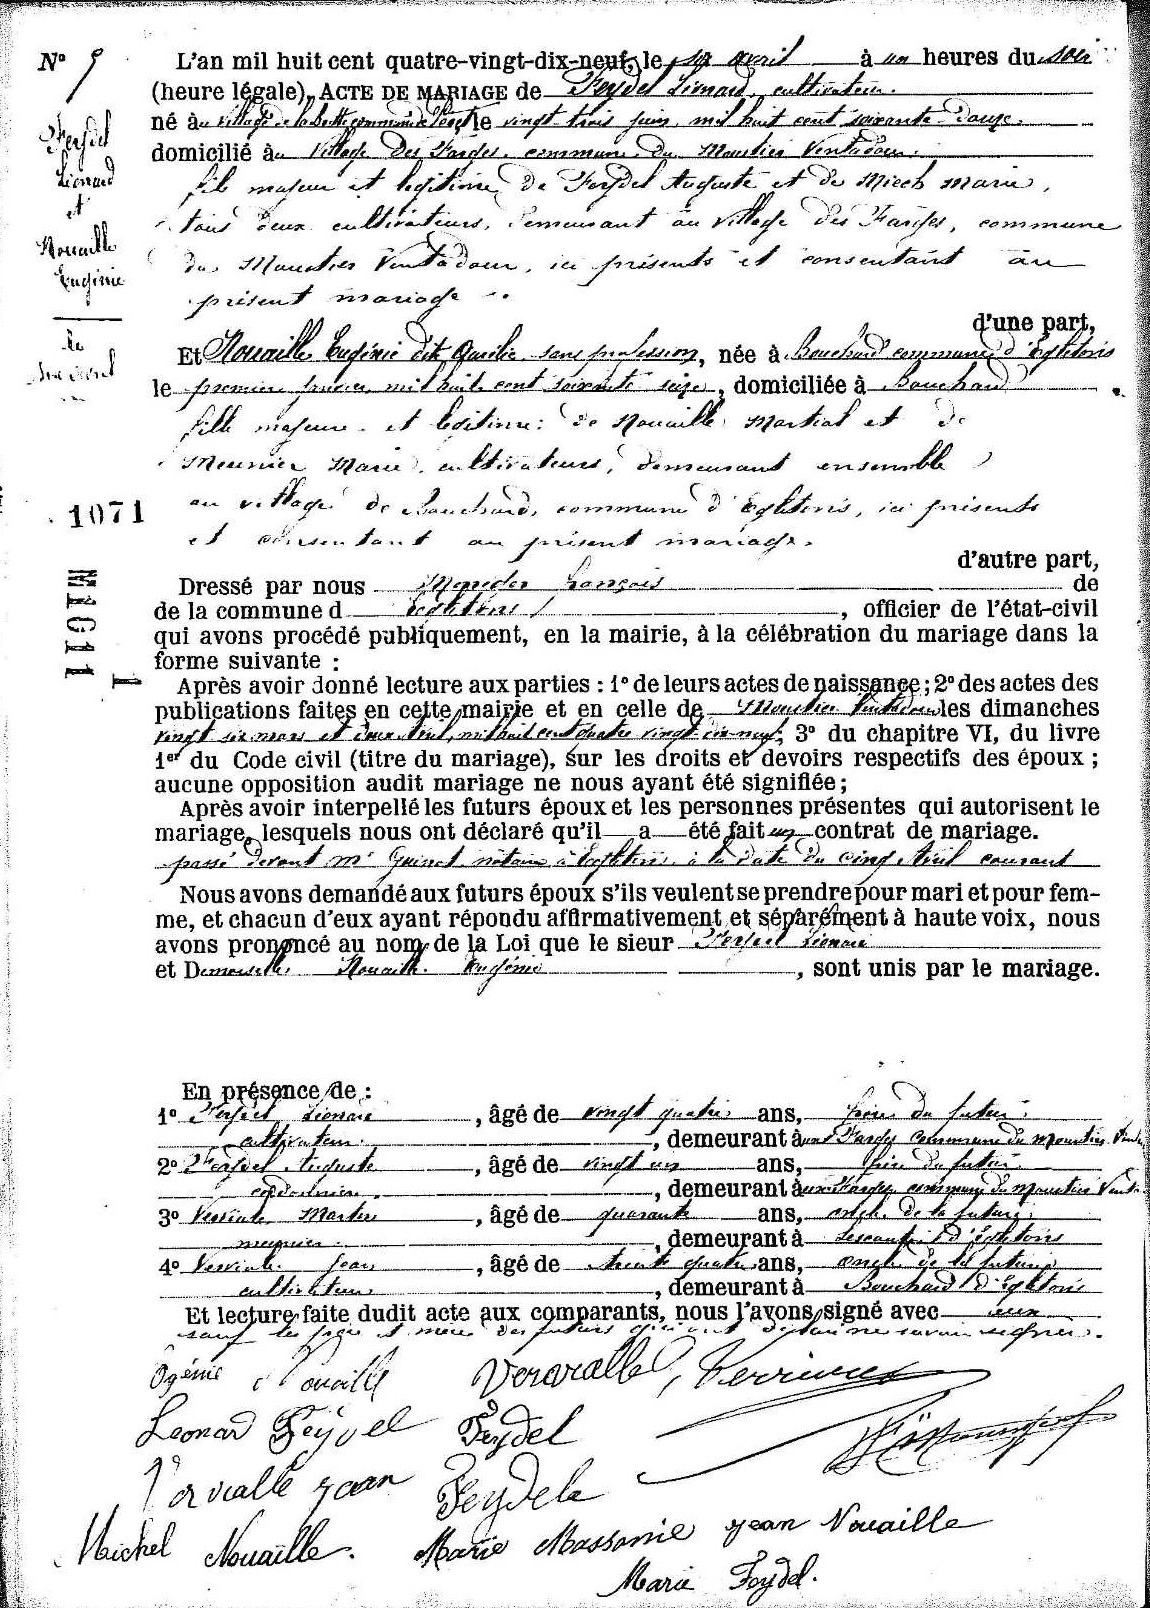 N° 9
L'an mil huit cent quatre-vingt-dix-neuf, le six avril à un heures du soir
(heure légale), ACTE DE MARIAGE de Feydel Léonard, cultivateur.
né au village de la commune le vingt trois juin mil huit cent soixante douze.
domicilié au village des Farges, commune du Moustier Ventadour.
fils majeur et légitime de Feydel Auguste et de Miech Marie,
tous deux cultivateurs, demeurant au village des Farges, commune
du Moustier Ventadour, ici présents et consentant au
présent mariage
d'une part,
Et Nouaille Eugénie dit sans profession, née à Bouchard commune d'Egletons
le premier mil huit cent soixante seize, domiciliée à Bouchard
fille majeure et légitime de Nouaille Martial et de
Meunier Marie, cultivateurs, demeurant ensemble
au village de Bouchard, commune d'Egletons, ici présents
et consentant au présent mariage.
d'autre part,
Feydel
Léonard
et
Nouaille
Eugénie
le
six avril
1071
M1G11
1
Dressé par nous François de
de la commune d Egletons, officier de l'état-civil
qui avons procédé publiquement, en la mairie, à la célébration du mariage dans la
forme suivante :
Après avoir donné lecture aux parties : 1° de leurs actes de naissance ; 2° des actes des
publications faites en cette mairie et en celle de Moustier Ventadour les dimanches
vingt six mars et deux avril, mil huit cent quatre vingt dix-neuf ; 3° du chapitre VI, du livre
1er du Code civil (titre du mariage), sur les droits et devoirs respectifs des époux ;
aucune opposition audit mariage ne nous ayant été signifiée ;
Après avoir interpellé les futurs époux et les personnes présentes qui autorisent le
mariage, lesquels nous ont déclaré qu'il a été fait un contrat de mariage.
passé devant Me notaire à Egletons à la date du cinq avril courant
Nous avons demandé aux futurs époux s'ils veulent se prendre pour mari et pour fem-
me, et chacun d'eux ayant répondu affirmativement et séparément à haute voix, nous
avons prononcé au nom de la Loi que le sieur Feydel Léonard
et Demoiselle Nouaille Eugénie, sont unis par le mariage.
En présence de :
1° Feydel Léonard, âgé de vingt quatre ans, frère du futur,
cultivateur, demeurant aux Farges commune du Moustier Vent
2° Feydel Auguste, âgé de vingt un ans, frère du futur
cordonnier, demeurant aux Farges commune du Moustier Vent
3° Vervialle Martin, âgé de quarante ans, oncle de la future
meunier, demeurant à d'Egletons
4° Vervialle Jean, âgé de trente quatre ans, oncle de la future
cultivateur, demeurant à Bouchard d'Egletons
Et lecture faite dudit acte aux comparants, nous l'avons signé avec eux
sauf les père et mère des futurs qui ont déclaré ne savoir signer.
Ogénie Nouaille Vervialle
Léonard Feydel Feydel
Vervialle jean Feydel
Michel Nouaille. Marie Massonie jean Nouaille
Marie Feydel.